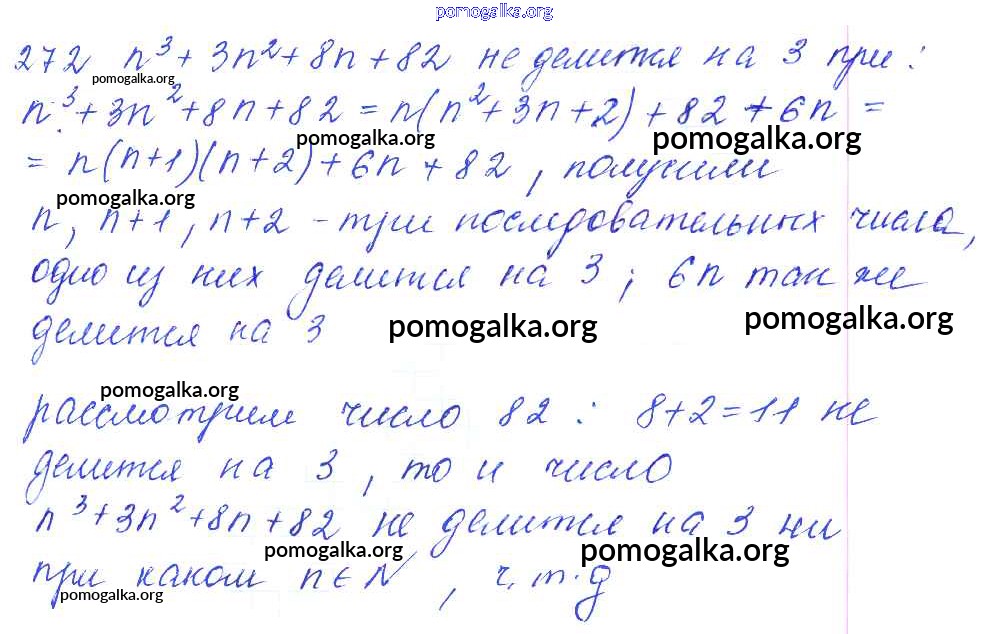 pomogalka.org
272 n³ + 3n² + 8n + 82 не делится на 3 при:
pomogalka.org
n³ + 3n² + 8n + 82 = n(n² + 3n + 2) + 82 + 6n =
pomogalka.org pomogalka.org
= n(n+1)(n+2) + 6n + 82, получили
pomogalka.org
n, n+1, n+2 - три последовательных числа,
одно из них делится на 3; 6n так же
делится на 3
pomogalka.org pomogalka.org
pomogalka.org
рассмотрим число 82 : 8+2=11 не
делится на 3, то и число
n³+3n²+8n+82 не делится на 3 ни
pomogalka.org pomogalka.org
при каком n∈N, ч.т.д
pomogalka.org